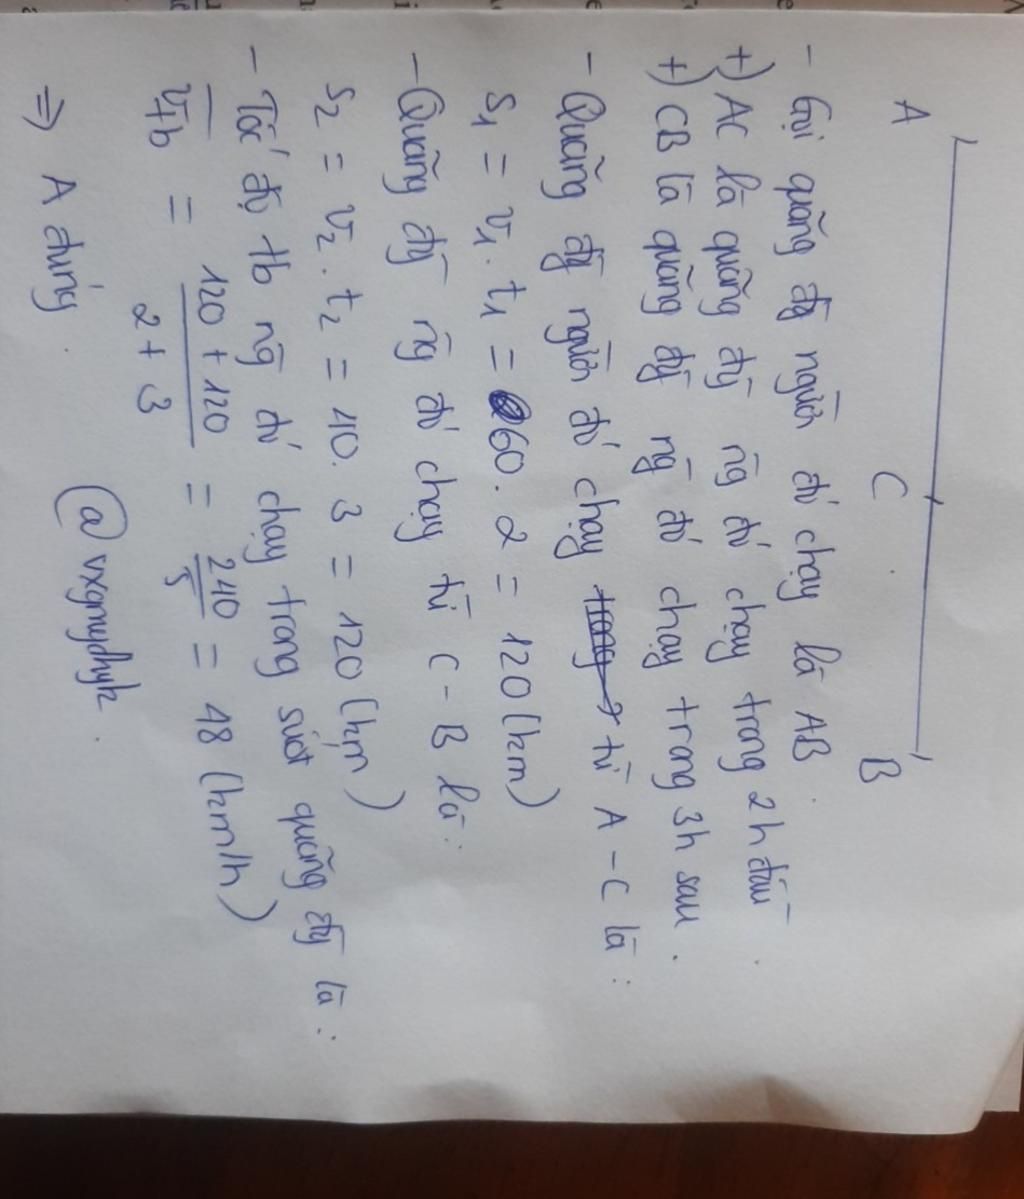 A C B
- Gọi quãng đg người đó chạy là AB.
+) AC là quãng đg ng đó chạy trong 2h đầu.
+) CB là quãng đg ng đó chạy trong 3h sau.
- Quãng đg người đó chạy từ A - C là:
S₁ = v₁ . t₁ = 60 . 2 = 120 (km)
- Quãng đg ng đó chạy từ C - B là:
S₂ = v₂ . t₂ = 40 . 3 = 120 (km)
- Tốc độ tb ng đó chạy trong suốt quãng đg là:
v̅tb = (120 + 120)/(2 + 3) = 240/5 = 48 (km/h)
⇒ A đúng.